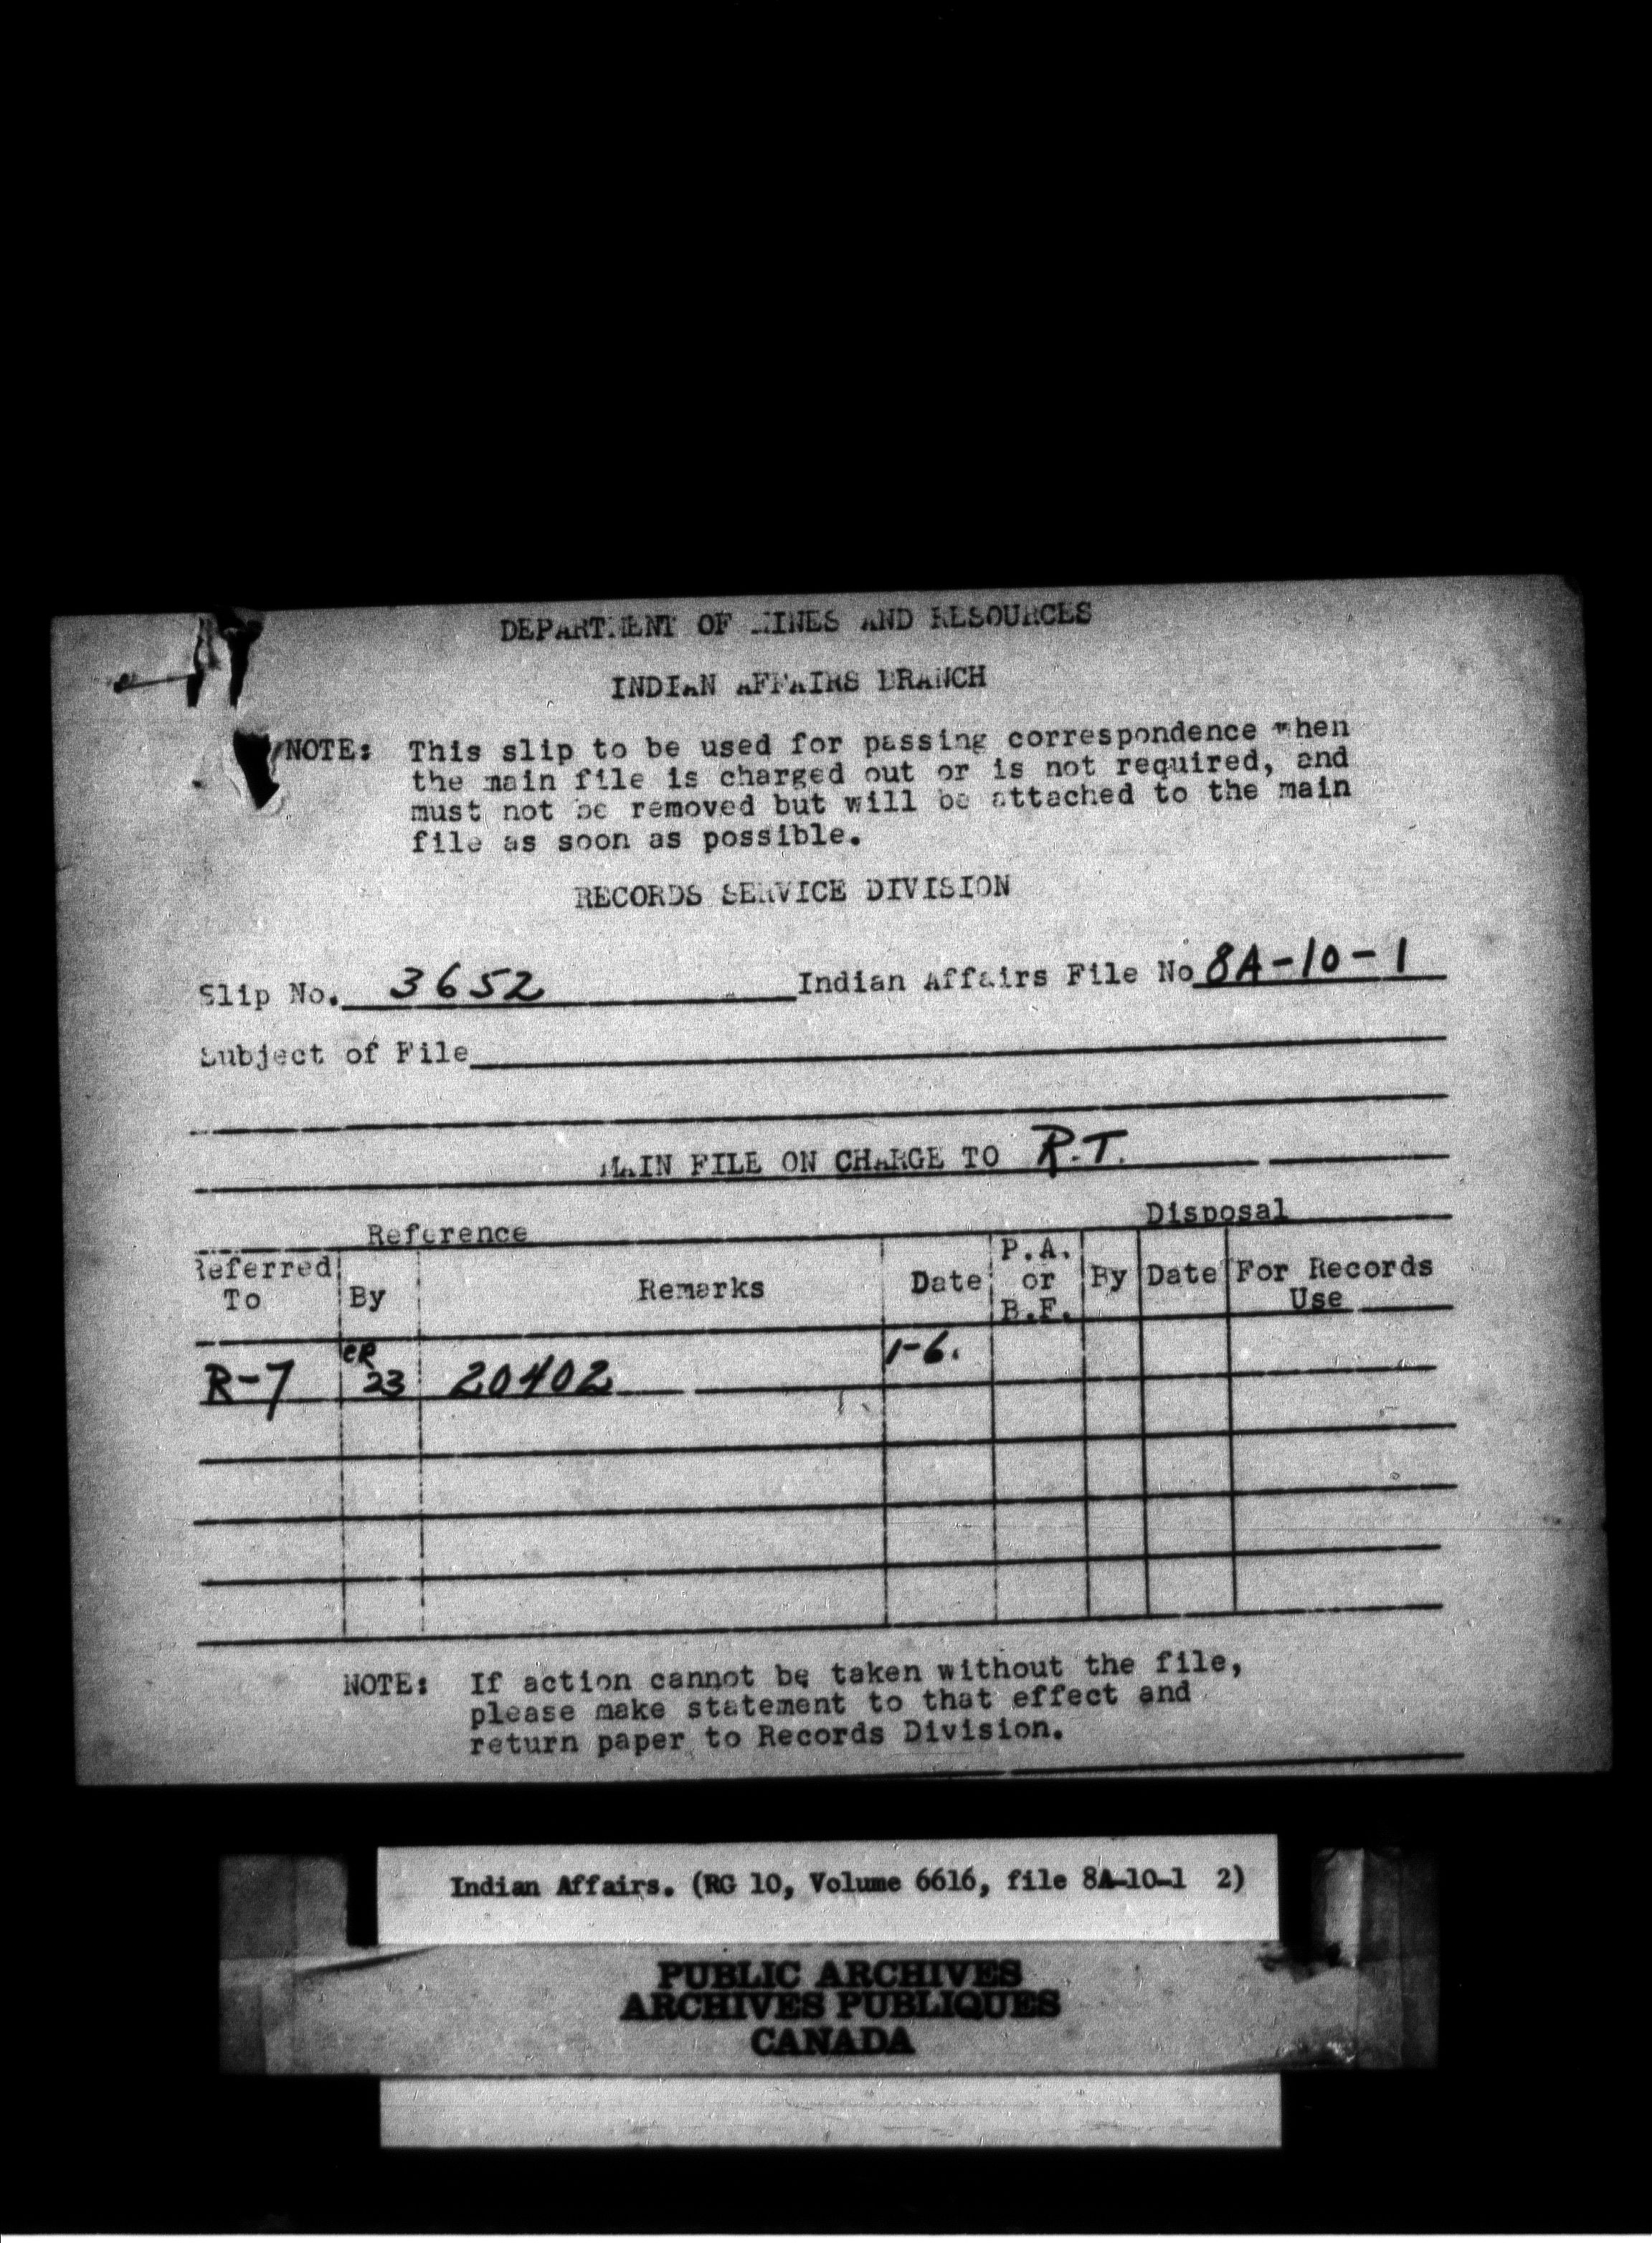 DEPARTMENT OF MINES AND RESOURCES
INDIAN AFFAIRS BRANCH
NOTE: This slip to be used for passing correspondence when
the main file is charged out or is not required, and
must not be removed but will be attached to the main
file as soon as possible.
RECORDS SERVICE DIVISION
Slip No. 3652 Indian Affairs File No 8A-10-1
Subject of File
MAIN FILE ON CHARGE TO R.T.
Reference Disposal
Referred To By Remarks Date P.A. or B.F. By Date For Records Use
R-7 CR 23 20402 1-6.
NOTE: If action cannot be taken without the file,
please make statement to that effect and
return paper to Records Division.
Indian Affairs. (RG 10, Volume 6616, file 8A-10-1 2)
PUBLIC ARCHIVES
ARCHIVES PUBLIQUES
CANADA